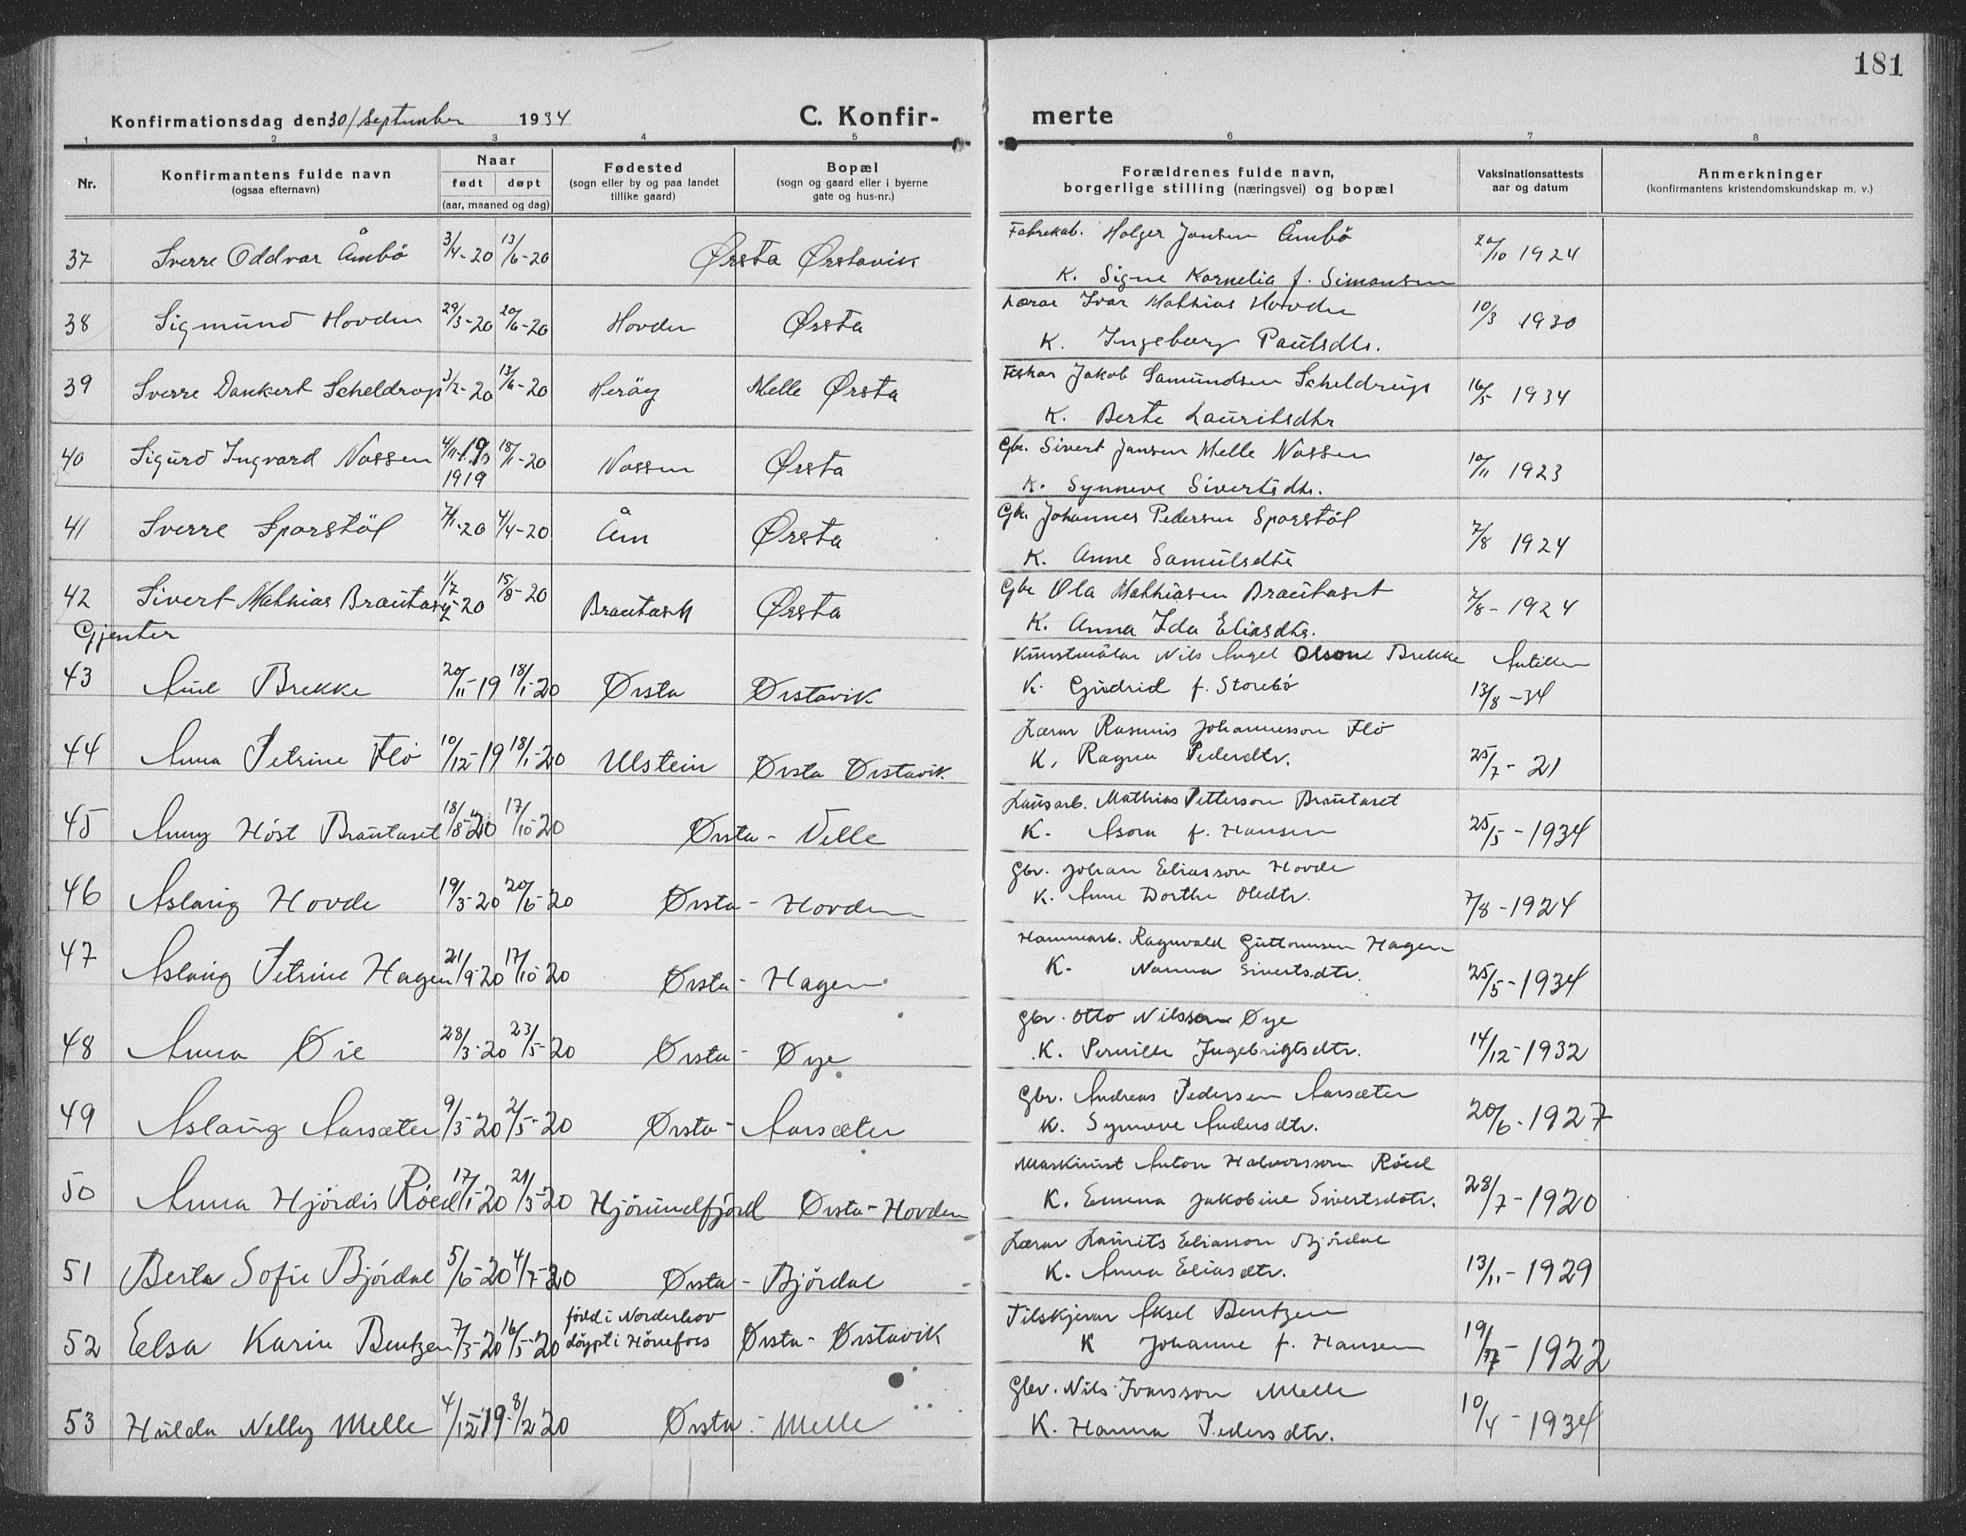 181
Konfirmationsdag den 30/september 1934 C. Konfir- merte
1 2 3 4 5 6 7 8
Nr. Konfirmantens fulde navn (ogsaa efternavn) Naar født døpt (aar, maaned og dag) Fødested (sogn eller by og paa landet tillike gaard) Bopæl (sogn og gaard eller i byerne gate og hus-nr.) Forældrenes fulde navn, borgerlige stilling (næringsvei) og bopæl Vaksinationsattests aar og datum Anmerkninger (konfirmantens kristendomskundskap m. v.)
37 Sverre Oddvar Åmbö 3/4-20 13/6-20 Ørsta Ørstavik Fabrekab. Holger Jansen Åmbö 20/10 1924
K. Signe Kornelia f. Simonsen
38 Sigmund Hovden 29/3-20 20/6-20 Hovden Ørsta Lærar Ivar Mathias Hovden 10/3 1930
K. Ingeborg Paulsdtr.
39 Sverre Dankert Scheldrop 3/2-20 13/6-20 Heröy Melle Ørsta Fiskar Jakob Samundsen Scheldrup 16/5 1934
K. Berte Lauritsdtr
40 Sigurd Ingvard Nossen 4/11-19 1919 18/1-20 Nossen Ørsta Gbr. Sivert Jansen Melle Nossen 10/11 1923
K. Synneve Sivertsdtr.
41 Sverre Sporstöl 7/1-20 4/4-20 Åm Ørsta Gbr. Johannes Pedersen Sporstöl 7/8 1924
K. Anne Samulsdtr
42 Sivert Mathias Brautaset 1/7-20 15/8-20 Brautaset Ørsta Gbr Ola Mathiasen Brautaset 7/8-1924
K. Anna Ida Eliasdtr.
Gjenter
43 Aud Brekke 20/11-19 18/1-20 Ørsta Ørstavik Kunstmålar Nils Angel Olson Brekke 13/8-34
K. Gudrid f. Storebö
44 Anna Petrine Flö 10/12-19 18/1-20 Ulstein Ørsta Ørstavik Lærar Rasmus Johannesson Flö 25/7-21
K. Ragna Pedersdtr.
45 Anny Höst Brautaset 18/8-20 17/10-20 Ørsta - Velle Lausarb. Mathias Petterson Brautaset 25/5-1934
K. Asora f. Hansen
46 Aslaug Hovde 19/3-20 20/6-20 Ørsta - Hovden Gbr. Johan Eliasson Hovde 7/8-1924
K. Anne Dorthe Oledtr.
47 Aslaug Petrine Hagen 21/9-20 17/10-20 Ørsta - Hagen Hammarb. Ragnvald Guttormsen Hagen 25/5-1934
K. Nanna Sivertsdtr.
48 Anna Øie 28/3-20 23/5-20 Ørsta - Øye Gbr. Otto Nilsson Øye 14/12-1932
K. Pernille Ingebrigtsdtr.
49 Aslaug Aarsæter 9/3-20 2/5-20 Ørsta - Aarsæter Gbr. Andreas Pedersen Aarsæter 20/6-1927
K. Synneve Andersdtr.
50 Anna Hjördis Röed 17/1-20 21/3-20 Hjörundfjord Ørsta-Hovden Maskinist Anton Halvorsson Röed 28/7-1920
K. Emma Jakobine Sivertsdotr.
51 Berta Sofie Björdal 5/6-20 4/7-20 Ørsta - Björdal Lærar Laurits Eliasson Björdal 13/11-1929
K. Anna Eliasdtr.
52 Elsa Karin Bentzen 7/3-20 16/5-20 född i Norderhov döypt i Hönefoss Ørsta - Ørstavik Tilskjerar Aksel Bentzen 19/ - 1922
K Johanne f. Hansen
53 Hulda Nelly Melle 4/12-19 8/2-20 Ørsta - Melle Gbr. Nils Ivarsson Melle 10/4-1934
K. Hanna Pedersdtr.